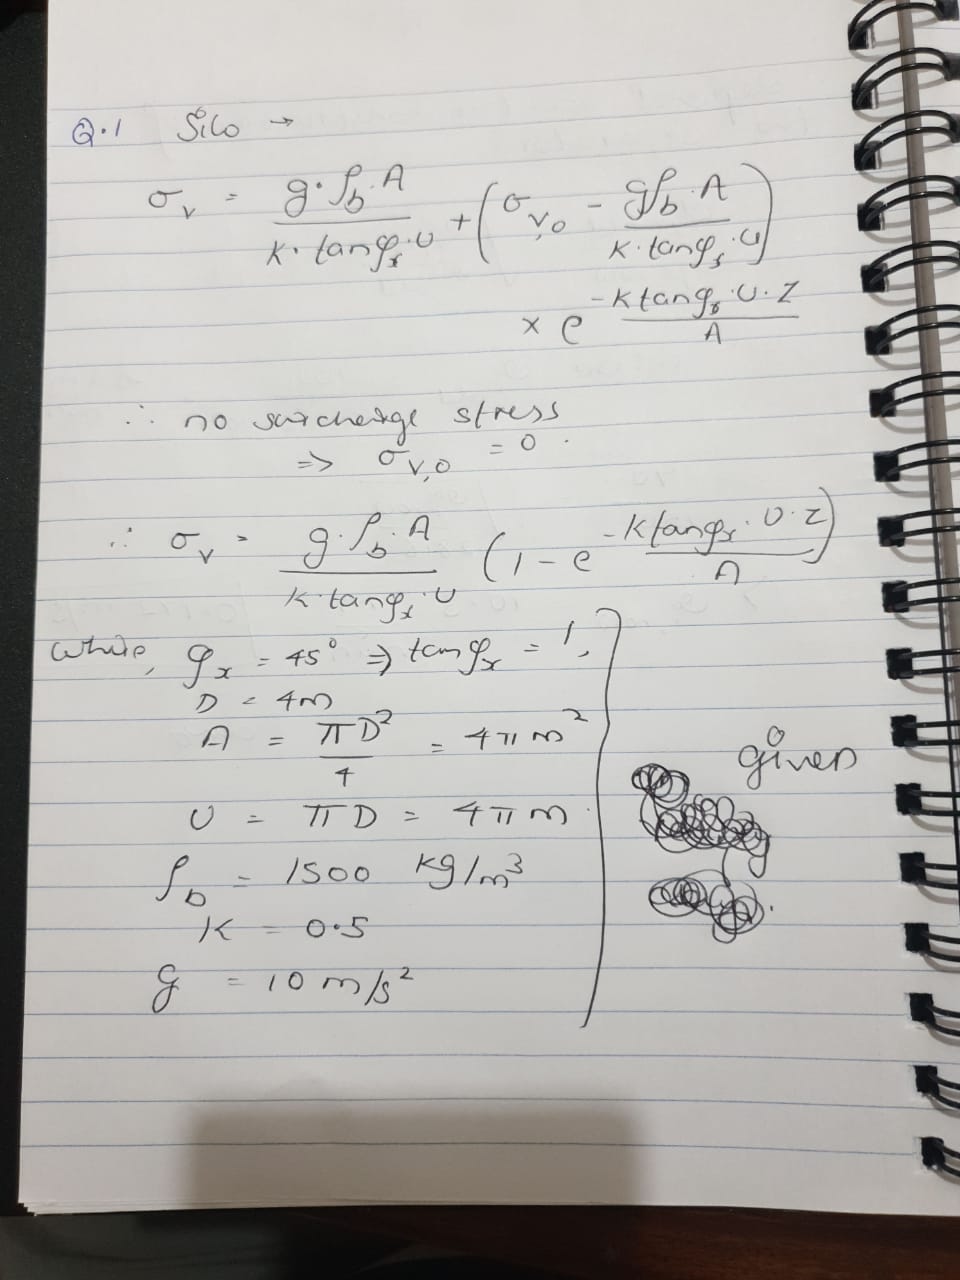 Q.1 Silo →
σ_v = g·ρ_b·A / (K·tanφ_x·U) + (σ_v,o − gρ_b·A / (K·tanφ_x·U))
× e^(−K tanφ_x·U·Z / A)
∴ no surcharge stress
⇒ σ_v,o = 0.
∴ σ_v = g·ρ_b·A / (K·tanφ_x·U) (1 − e^(−K tanφ_x·U·Z / A))
While, φ_x = 45° ⇒ tanφ_x = 1,
D = 4m
A = πD² / 4 = 4π m²
given
U = πD = 4π m
ρ_b = 1500 kg/m³
K = 0.5
g = 10 m/s²